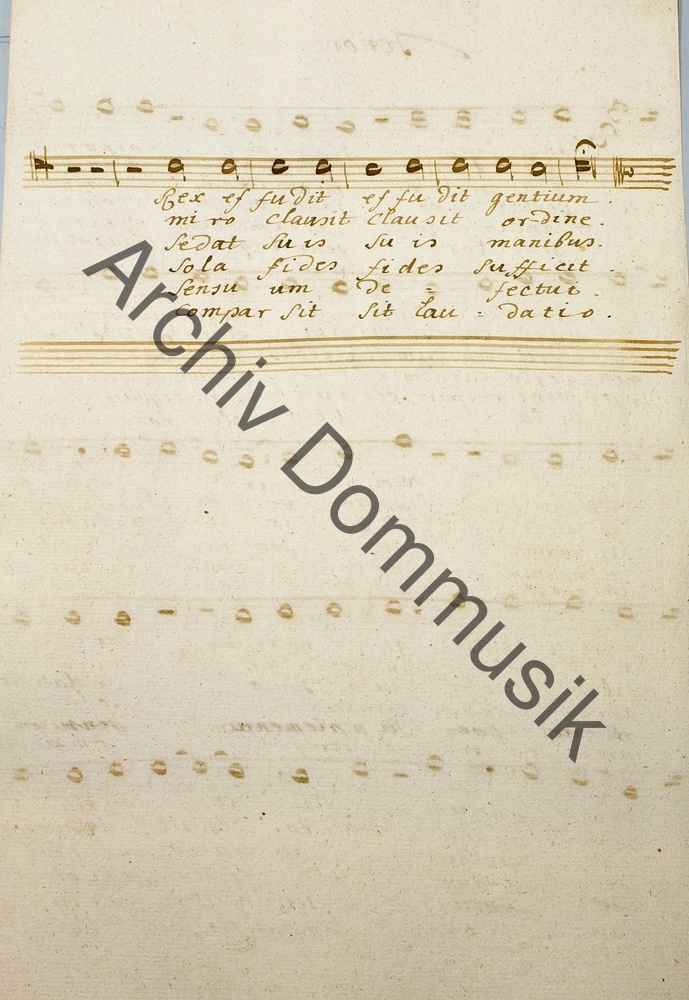 Rex ef fu dit ef fu dit gentium.
mi ro clausit clausit or-dine.
Sedat su is su is manibus.
Sola fides fides sufficit.
Sensu um de = fectui.
Compar sit sit lau = datio.
Archiv Dommusik